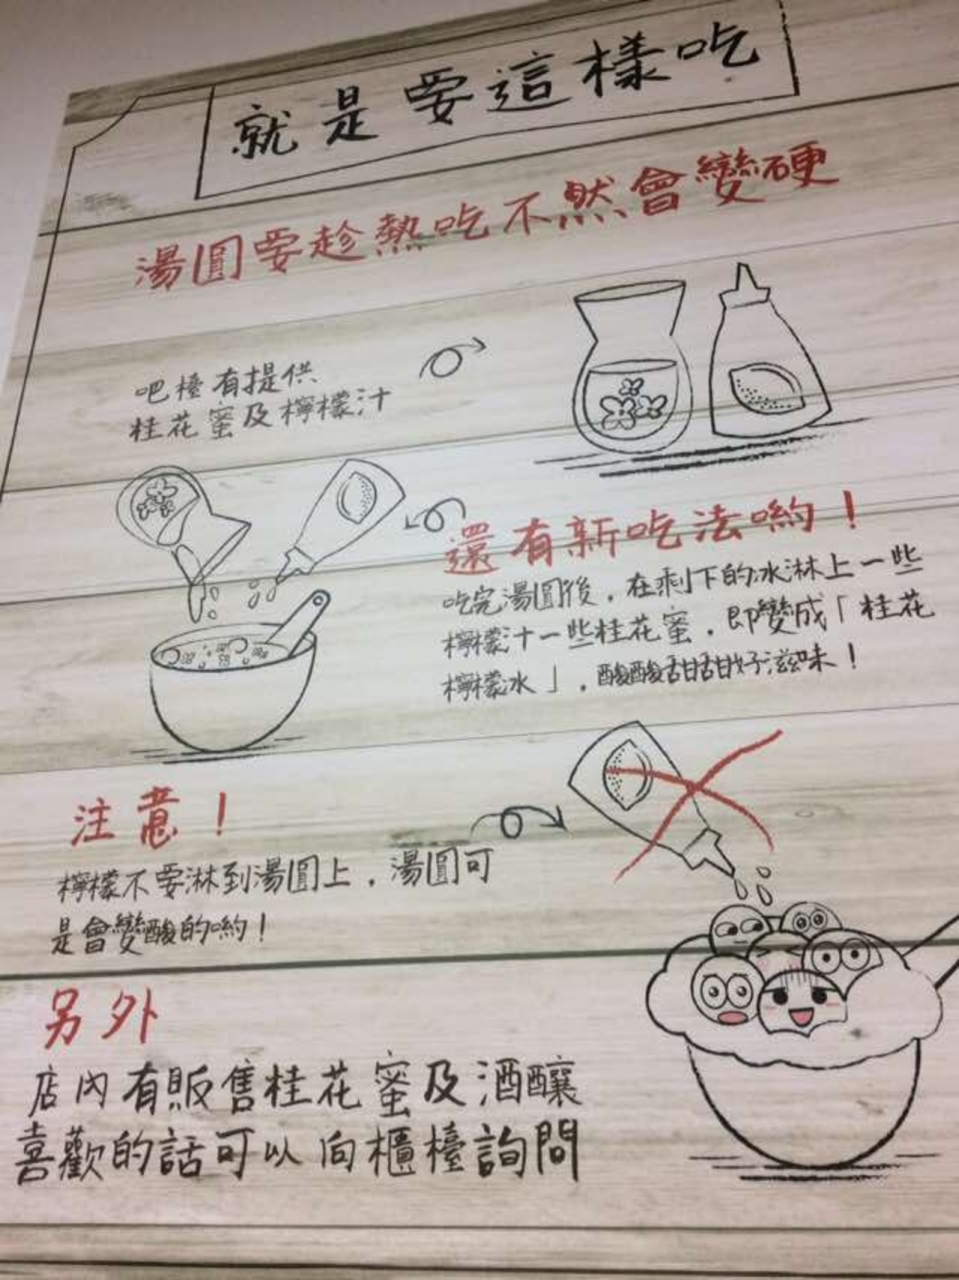 就是要這樣吃
湯圓要趁熱吃不然會變硬
吧檯有提供
桂花蜜及檸檬汁
還有新吃法喲！
吃完湯圓後，在剩下的冰淋上一些
檸檬汁一些桂花蜜，即變成「桂花
檸檬冰」，酸酸甜甜好滋味！
注意！
檸檬不要淋到湯圓上，湯圓可
是會變酸的喲！
另外
店內有販售桂花蜜及酒釀
喜歡的話可以向櫃檯詢問